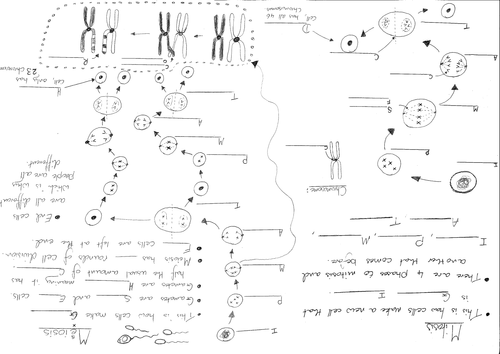 Mitosis
• This is how cells make a new cell that
is G I.
• There are 4 phases to mitosis and
another that comes before.
I, P, M,
A, T
I
Chromosome:
P
C
M
S
F
A
C
T
C
D
cell has all 46
chromosomes
Meiosis
• This is how cells make G
• Gametes are S and E cells
• Gametes are H meaning it has
half the usual amount of C
• Meiosis has rounds of cell division
• F cells are left at the end.
• End cells
are all different
which is why
people are all
different.
I
P
M
A
T
P
M
A
T
H
cell, only has
23 chromosomes
C
R